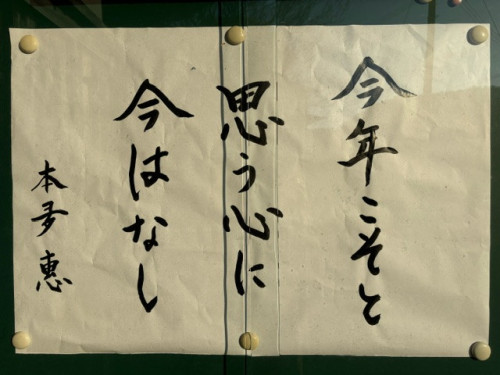 今年こそと
思う心に
今はなし
本多恵